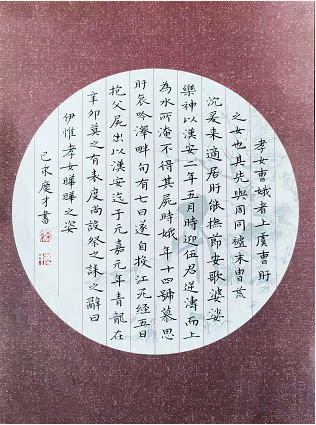 孝女曹娥者上虞曹盱
之女也其先與周同祖末胄荒
沉爰来適居盱能撫節安歌婆娑
樂神以漢安二年五月時迎伍君逆濤而上
為水所淹不得其屍時娥年十四號慕思
盱哀吟澤畔旬有七日遂自投江死經五日
抱父屍出以漢安迄于元嘉元年青龍在
辛卯莫之有表度尚設祭之誄之辭曰
伊惟孝女曄曄之姿
己亥慶才書